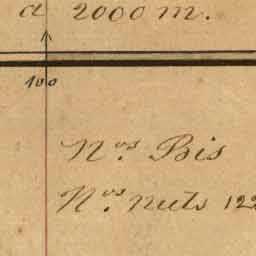 a 2000 m.
100
Nos. Bis
Nos. nuls 122